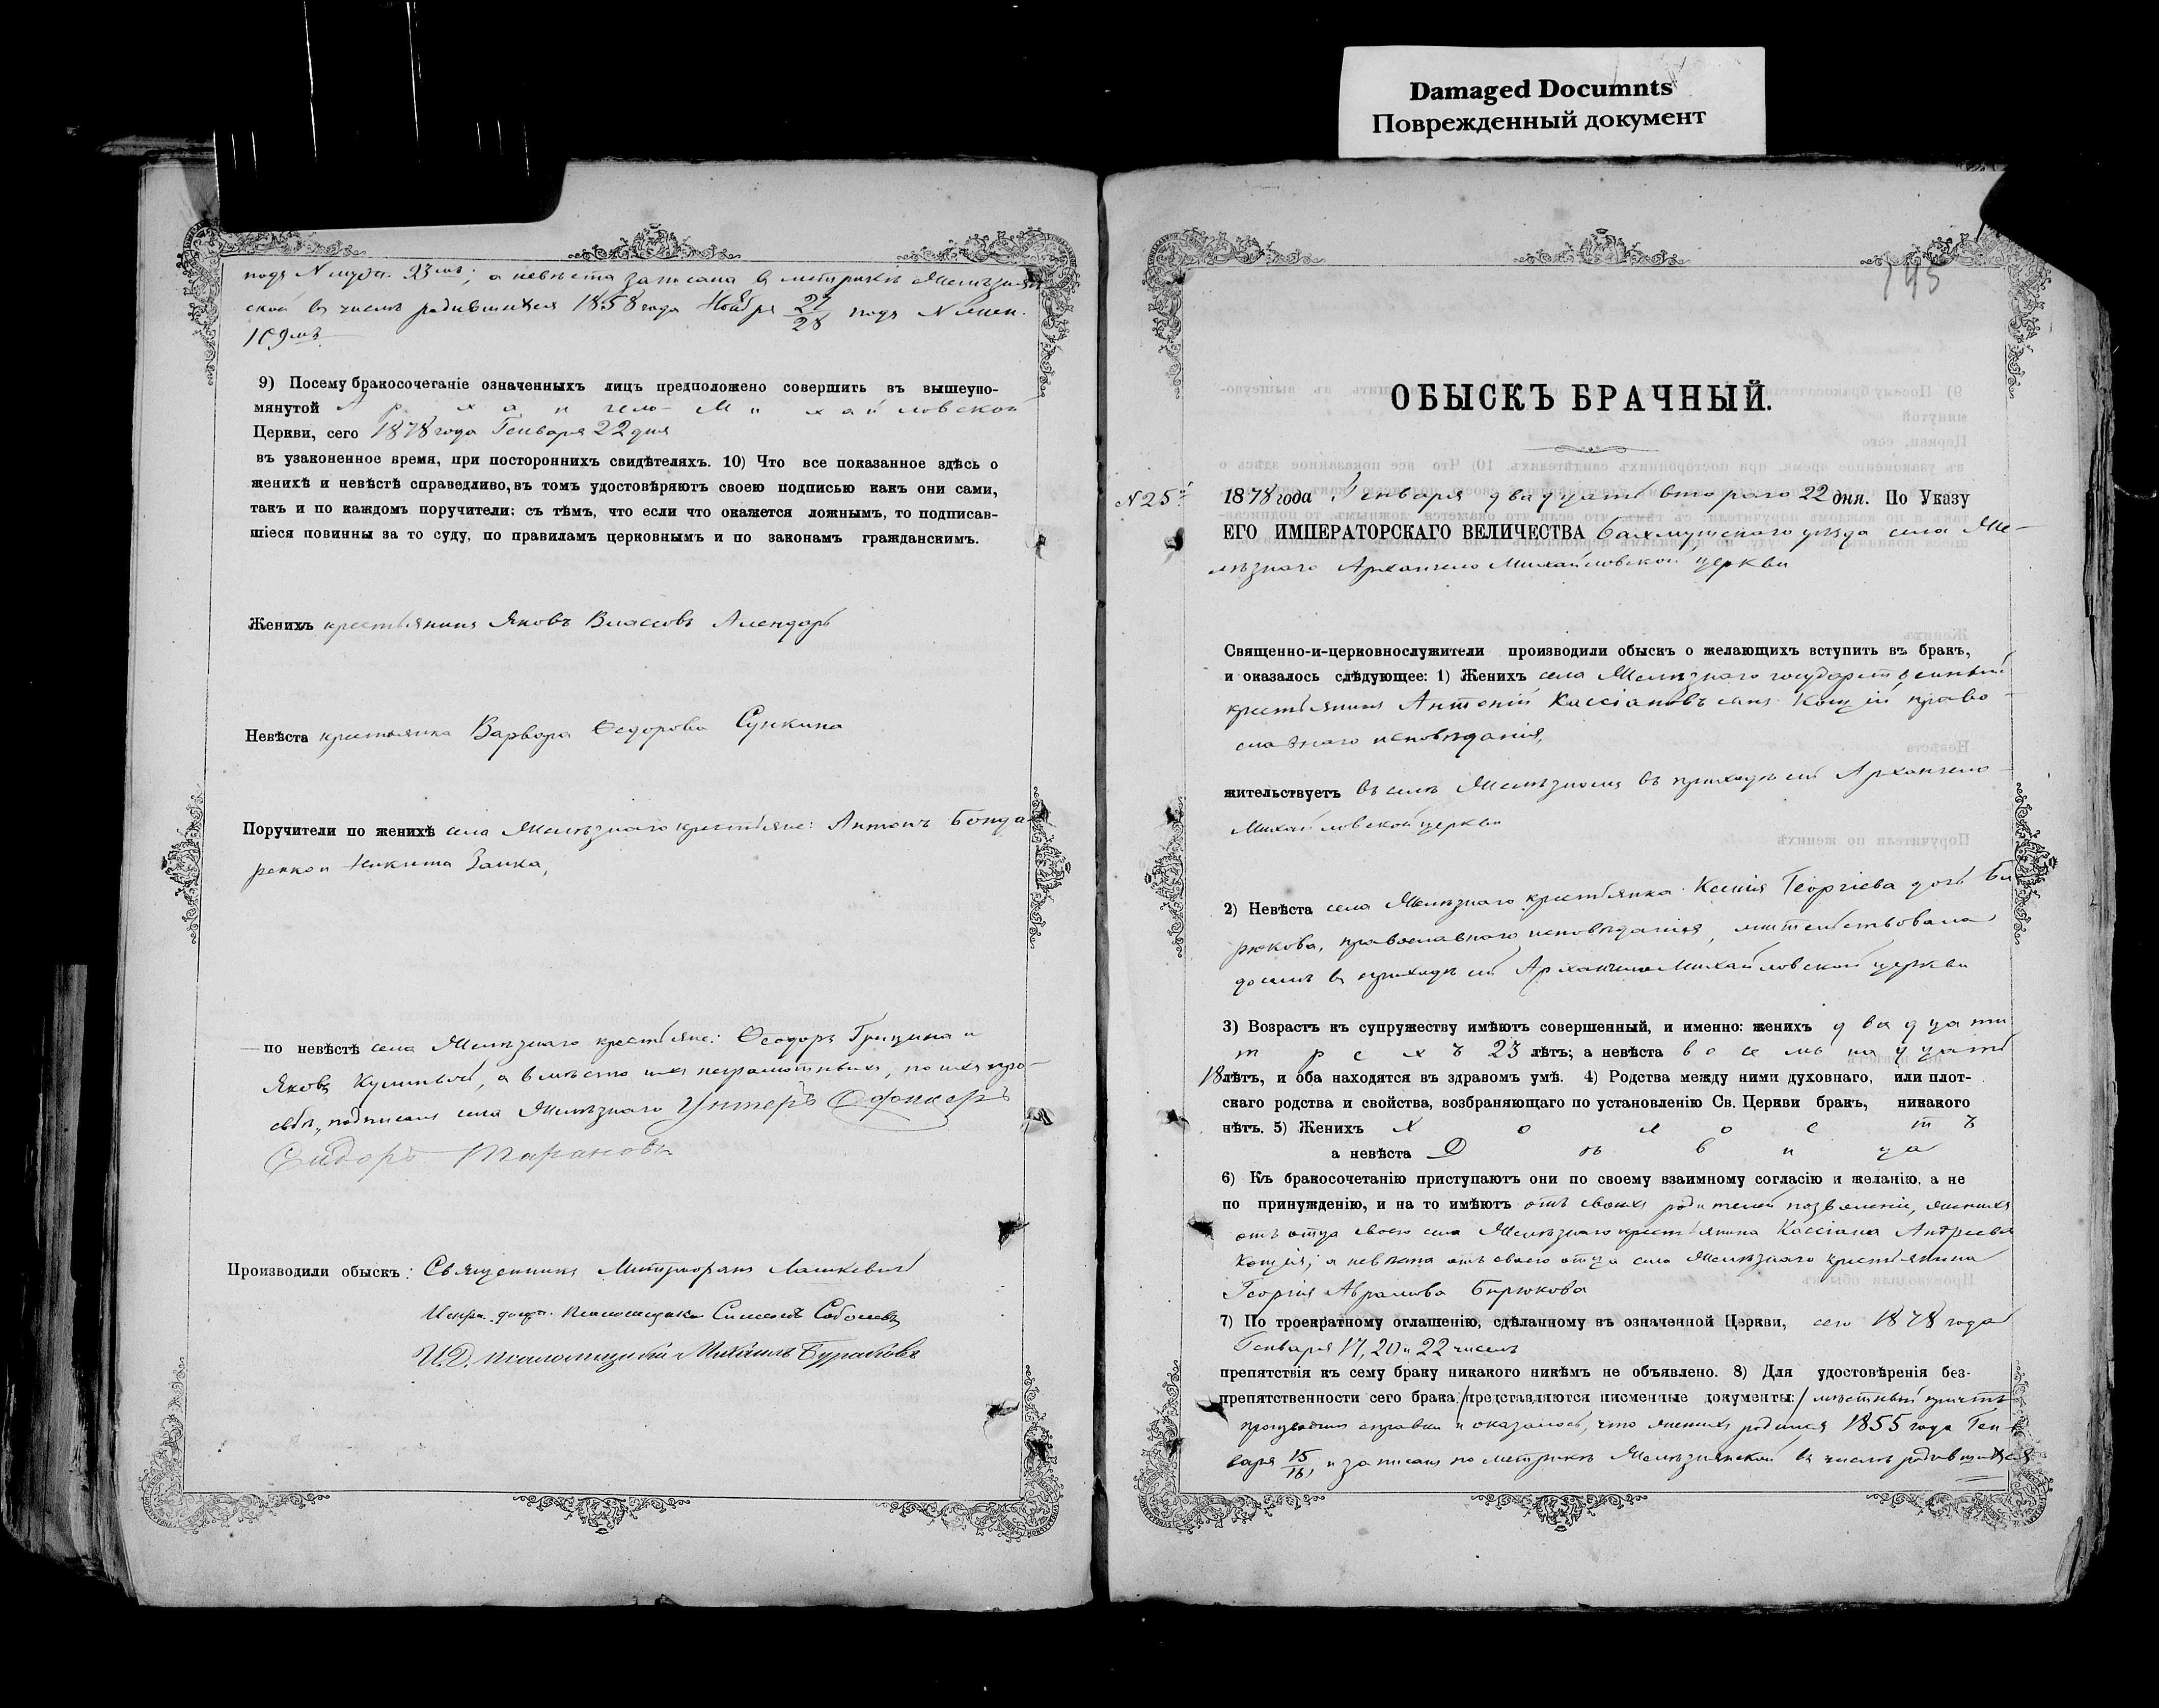 Damaged Documnts
Поврежденный документ
подъ № мужч. 23мъ; а невѣста записана въ метрикѣ Желѣзнян-
ской въ числѣ родившихся 1858 года Ноября 27/28 подъ № женск.
109мъ.
9) Посему бракосочетаніе означенныхъ лицъ предположено совершить въ вышеупо-
мянутой Архангело-Михайловской
Церкви, сего 1878 года Генваря 22 дня
въ узаконенное время, при постороннихъ свидѣтеляхъ. 10) Что все показанное здѣсь о
женихѣ и невѣстѣ справедливо, въ томъ удостовѣряютъ своею подписью какъ они сами,
такъ и по каждомъ поручители; съ тѣмъ, что если что окажется ложнымъ, то подписав-
шіеся повинны за то суду, по правиламъ церковнымъ и по законамъ гражданскимъ.
Женихъ крестьянинъ Яковъ Власовъ
Невѣста крестьянка Варвара Ѳедорова Сункина
Поручители по женихѣ села Желѣзнаго крестьяне: Антонъ Бонда-
ренко и Никита Заика,
по невѣстѣ села Желѣзнаго крестьяне: Ѳеодоръ Грицина и
Яковъ, а вмѣсто ихъ неграмотныхъ, по ихъ про-
сьбѣ, подписалъ села Желѣзнаго Унтеръ Офицеръ
Сидоръ Тарановъ
Производили обыскъ: Священникъ Митрофанъ Лашкевичъ
псаломщика Симеонъ Соболевъ
И.Д. псаломщика Михаилъ Бураковъ
745
ОБЫСКЪ БРАЧНЫЙ.
№ 25й
1878 года Генваря двадцать втораго 22 дня. По Указу
ЕГО ИМПЕРАТОРСКАГО ВЕЛИЧЕСТВА Бахмутскаго уѣзда села Же-
лѣзнаго Архангело Михайловской церкви
Священно-и-церковнослужители производили обыскъ о желающихъ вступить въ бракъ,
и оказалось слѣдующее: 1) Женихъ села Желѣзнаго государственный
крестьянинъ Антоній Кассіановъ сынъ Коцій право-
славнаго исповѣданія,
жительствуетъ въ селѣ Желѣзномъ въ приходѣ сей Архангело-
Михайловской церкви
2) Невѣста села Желѣзнаго крестьянка Ксенія Георгіева дочь Би-
рюкова, православнаго исповѣданія, жительствовала
доселѣ въ приходѣ сей Архангело Михайловской церкви
3) Возрастъ къ супружеству имѣютъ совершенный, и именно: женихъ двадцати
трехъ 23 лѣтъ; а невѣста восемьнадцати
18 лѣтъ, и оба находятся въ здравомъ умѣ. 4) Родства между ними духовнаго, или плот-
скаго родства и свойства, возбраняющаго по установленію Св. Церкви бракъ, никакого
нѣтъ. 5) Женихъ Холостъ
а невѣста Дѣвица
6) Къ бракосочетанію приступаютъ они по своему взаимному согласію и желанію, а не
по принужденію, и на то имѣютъ отъ своихъ родителей позволеніе, женихъ
отъ отца своего села Желѣзнаго крестьянина Кассіана Андреева
Коція; а невѣста отъ своего отца села Желѣзнаго крестьянина
Георгія Абрамова Бирюкова
7) По троекратному оглашенію, сдѣланному въ означенной Церкви, сего 1878 года
Генваря 17, 20 и 22 числъ
препятствія къ сему браку никакого никѣмъ не объявлено. 8) Для удостовѣренія без-
препятственности сего брака /представляются писменные документы:/ мѣстный причтъ
справки и оказалось, что женихъ родился 1855 года Ген-
варя 15/16, и записанъ по метрикѣ Желѣзнянской въ числѣ родившихся